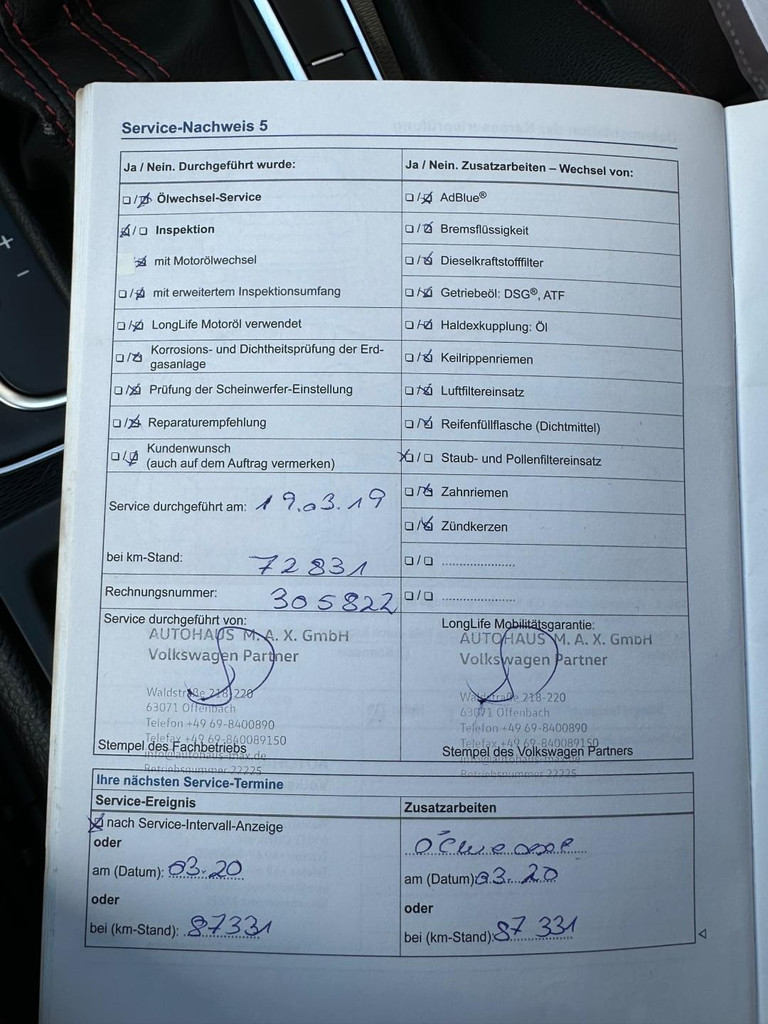 Service-Nachweis 5
Ja / Nein. Durchgeführt wurde:
Ölwechsel-Service
Inspektion
mit Motorölwechsel
mit erweitertem Inspektionsumfang
LongLife Motoröl verwendet
Korrosions- und Dichtheitsprüfung der Erd-
gasanlage
Prüfung der Scheinwerfer-Einstellung
Reparaturempfehlung
Kundenwunsch
(auch auf dem Auftrag vermerken)
Service durchgeführt am: 19.03.19
bei km-Stand: 72831
Rechnungsnummer: 305822
Ja / Nein. Zusatzarbeiten – Wechsel von:
AdBlue®
Bremsflüssigkeit
Dieselkraftstofffilter
Getriebeöl: DSG®, ATF
Haldexkupplung: Öl
Keilrippenriemen
Luftfiltereinsatz
Reifenfüllflasche (Dichtmittel)
Staub- und Pollenfiltereinsatz
Zahnriemen
Zündkerzen
Service durchgeführt von:
AUTOHAUS M. A. X. GmbH
Volkswagen Partner
Waldstraße 218-220
63071 Offenbach
Telefon +49 69-8400890
Telefax +49 69-840089150
Stempel des Fachbetriebs
info@autohaus-max.de
Betriebsnummer 22225
LongLife Mobilitätsgarantie:
AUTOHAUS M. A. X. GmbH
Volkswagen Partner
Waldstraße 218-220
63071 Offenbach
Telefon +49 69-8400890
Telefax +49 69-840089150
Stempel des Volkswagen Partners
info@autohaus-max.de
Betriebsnummer 22225
Ihre nächsten Service-Termine
Service-Ereignis
nach Service-Intervall-Anzeige
oder
am (Datum): 03.20
oder
bei (km-Stand): 87331
Zusatzarbeiten
am (Datum): 03.20
oder
bei (km-Stand): 87 331